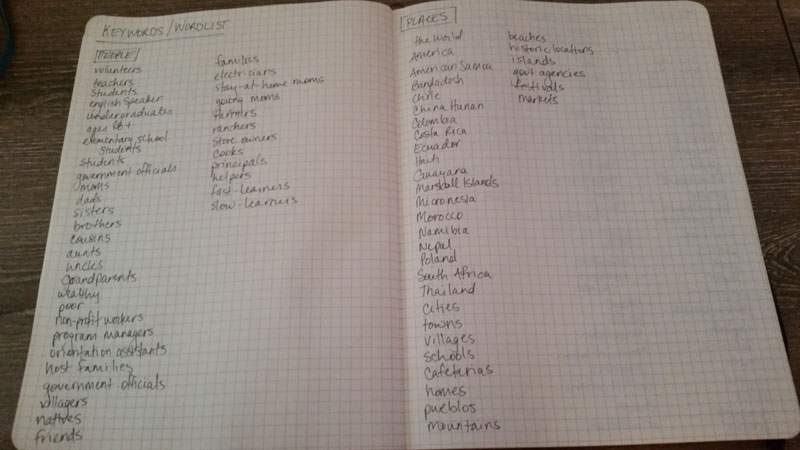 KEYWORDS/WORDLIST
PEOPLE
volunteers
teachers
students
english speaker
undergraduates
ages 18+
elementary school
students
students
government officials
moms
dads
sisters
brothers
cousins
aunts
uncles
Grandparents
wealthy
poor
non-profit workers
program managers
orientation assistants
host families
government officials
villagers
natives
friends
families
electricians
stay-at-home moms
young moms
farmers
ranchers
store owners
cooks
principals
helpers
fast-learners
slow-learners
PLACES
the World
America
American Samoa
Bangladesh
Chile
China Hunan
Colombia
Costa Rica
Ecuador
Haiti
Guayana
Marshall Islands
Micronesia
Morocco
Namibia
Nepal
Poland
South Africa
Thailand
cities
towns
villages
schools
cafeterias
homes
pueblos
mountains
beaches
historic locations
islands
govt agencies
festivals
markets